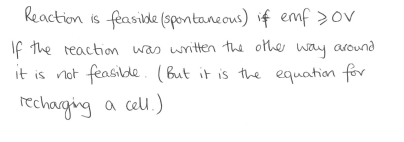 Reaction is feasible (spontaneous) if emf ⩾ 0V
If the reaction was written the other way around
it is not feasible. (But it is the equation for
recharging a cell.)